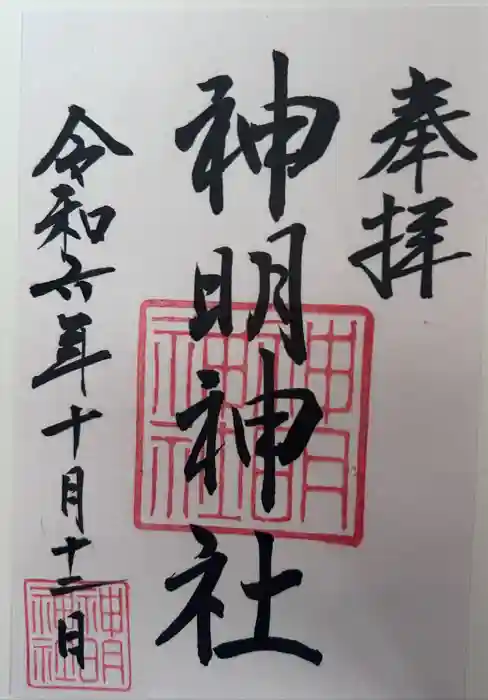 奉拝
神明神社
令和六年十月十二日
神明
神社
神明
神社